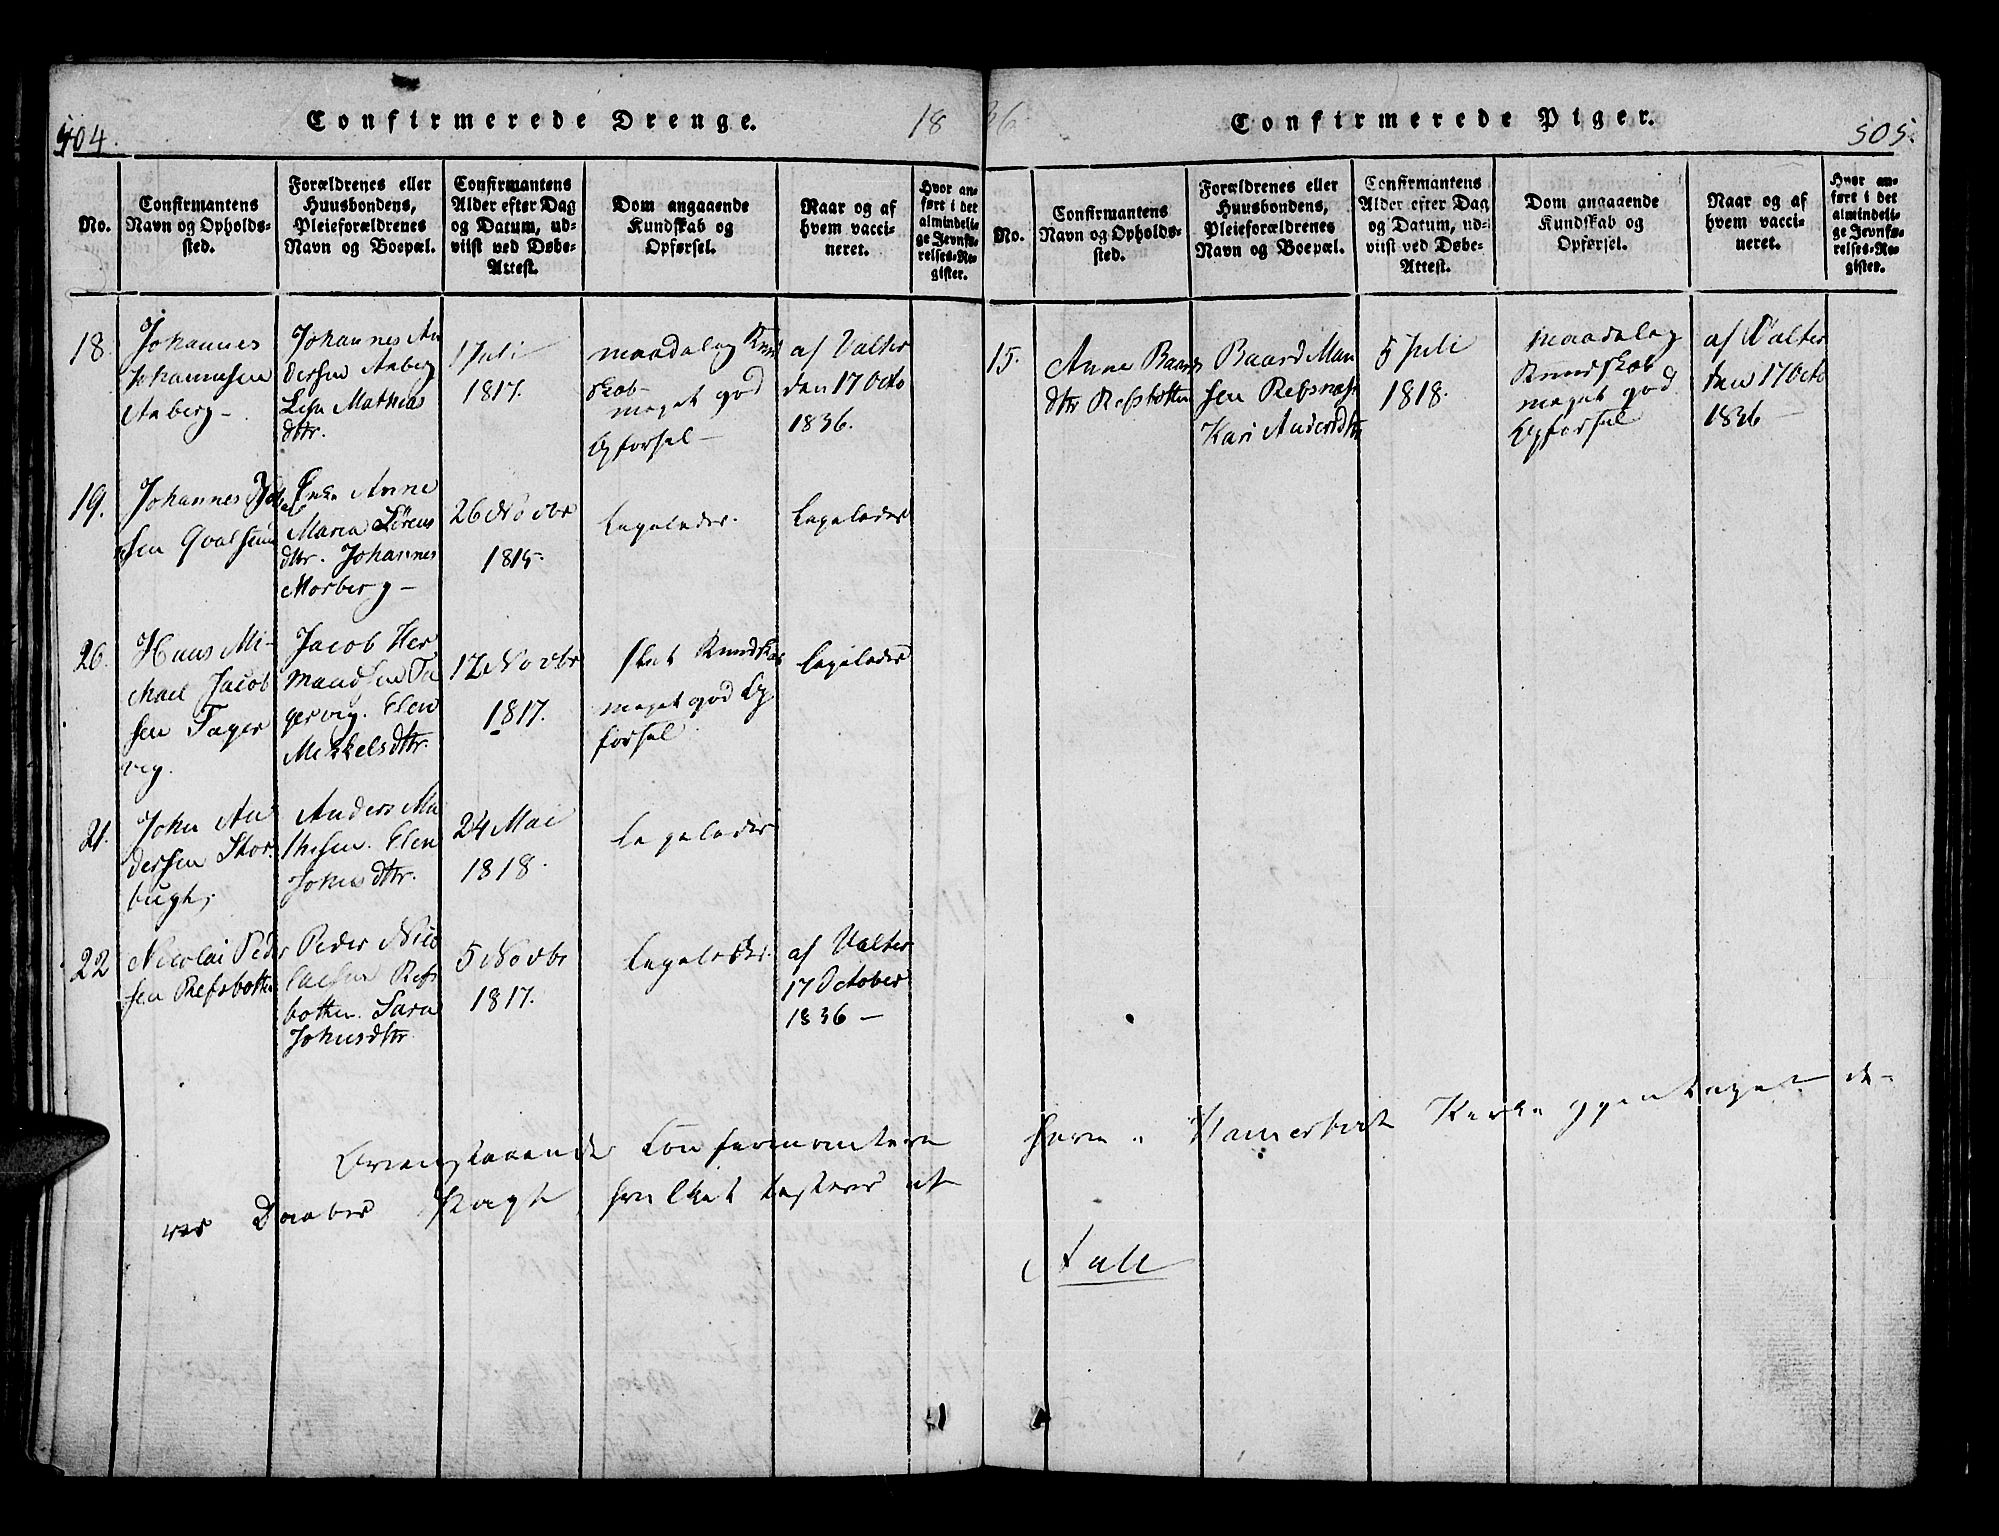 504.
Confirmerede Drenge.
18
No.
Confirmantens
Navn og Opholds-
sted.
Forældrenes eller
Huusbondens,
Pleieforældrenes
Navn og Boepæl.
Confirmantens
Alder efter Dag
og Datum, ud-
viist ved Døbe-
Attest.
Dom angaaende
Kundskab og
Opførsel.
Naar og af
hvem vacci-
neret.
Hvor an-
ført i det
almindeli-
ge Jevnfø-
relses-Re-
gister.
18.
Johannes
Johannesen
Aaberg-
Johannes An
dersen Aaberg
Mathias
dttr.
1 Juli
1817.
maadelig Kund
skab-
meget god
Opførsel-
af Valter
den 17 Octo
1836.
19.
Johannes
sen Qvalsund
Enke Anne
Maria Sørens
dttr. Johannes
Morberg-
26 Novbr
1815.
Ligeledes.
Ligeledes
20.
Hans Mi-
chael Jacob
sen Tager
vig.
Jacob Her
mandsen Ta
gervig. Elen
Mikkelsdttr.
12 Novbr
1817.
slet Kundskab
meget god Op
førsel
Ligeledes
21.
John An
dersen Skor
bugt,
Anders Ma
thisen. Elen
Johnsdttr.
24 Mai
1818.
Ligeledes
22
Nicolai Peder
sen Refsbotten
Peder Nico
laisen Refs
botten. Sara
Johnsdttr
5 Novbr
1817.
Ligeledes.
af Valter
17 October
1836-
Ovenstaaende Confirmantere
Daabes Pagt, hvilket testeres at
36
Confirmerede Piger.
505.
No.
Confirmantens
Navn og Opholds-
sted.
Forældrenes eller
Huusbondens,
Pleieforældrenes
Navn og Boepæl.
Confirmantens
Alder efter Dag
og Datum, ud-
viist ved Døbe-
Attest.
Dom angaaende
Kundskab og
Opførsel.
Naar og af
hvem vacci-
neret.
Hvor an-
ført i det
almindeli-
ge Jevnfø-
relses-Re-
gister.
15.
Anne Baards
dttr Refsbotten
Baard Man
sen Refsnæs
Kari Andersdttr
5 Juli
1818.
maadelig
Kundskab
meget god
Opførsel
af Valter
den 17 Octo
1836
Kirke igjentaget de-
Aall